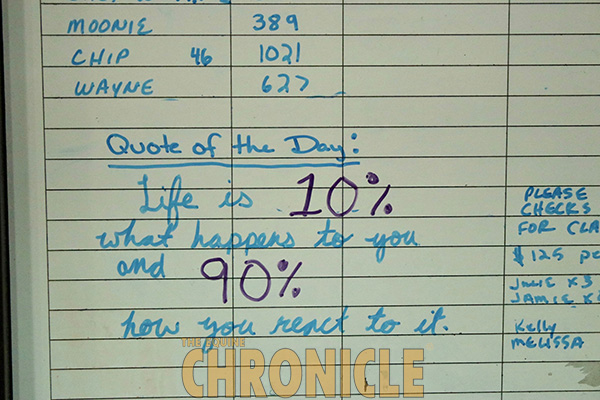 MOONIE 389
CHIP 46 1021
WAYNE 627
Quote of the Day:
Life is 10%
what happens to you
and 90%
how you react to it.
PLEASE
CHECKS
FOR
$125
JAMIE
Kelly
MELISSA
THE EQUINE
CHRONICLE